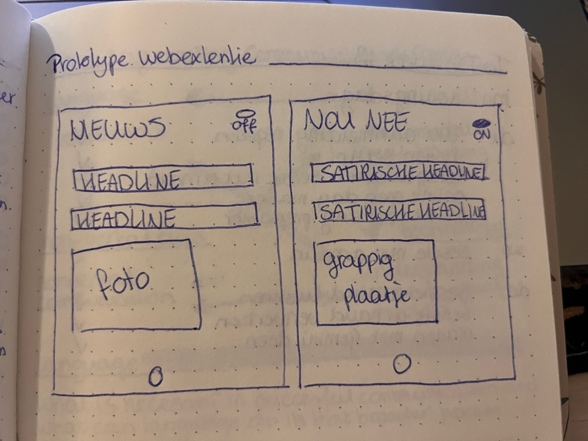 Prototype webextentie
NIEUWS
Off
HEADLINE
HEADLINE
foto
NOU NEE
ON
SATIRISCHE HEADLINE
SATIRISCHE HEADLINE
grappig
plaatje